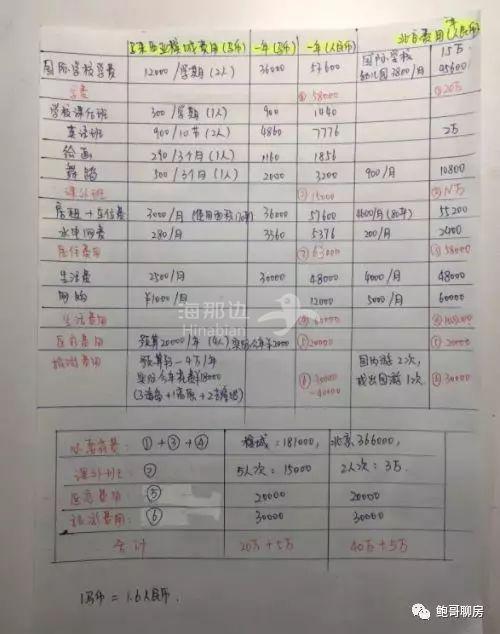 马来西亚槟城费用(马币) 一年(马币) 一年(人民币) 北京费用(人民币)
国际学校学费 12000/学期(2人) 36000 57600 国际学校 15万
幼儿园3800/月 45600
学费 ① 58000 ① 20万
学校课后班 300/学期(1人) 900 1440
英语班 900/10节(2人) 4860 7776 2万
绘画 290/3个月(1人) 1160 1856
舞蹈 500/3个月(1人) 2000 3200 900/月 10800
课外班 ② 15000 ② N万
房租+车位费 3000/月 36000 57600 4600/月 55200
水电网费 280/月 3360 5376 200/月 2400
居住费用 ③ 63000 ③ 58000
生活费 2500/月 30000 48000 4000/月 48000
网购 ¥1000/月 12000 5000/月 60000
生活费用 ④ 60000 ④ 108000
医疗费用 预算20000/年(4人) 实际今年¥2000 ⑤ 20000 ⑤ 20000
旅游费用 预算3-4万/年 ⑥ 30000 国内游2次, ⑥ 30000
实际今年花费¥18000 -40000 或出国游1次
海那边
Hinabian
①+③+④ 槟城:181000, 北京366000,
课外班② 5人次:15000 2人次:3万
医疗费用⑤ 20000 20000
旅游费用⑥ 30000 30000
合计 20万+5万 40万+5万
1马币=1.6人民币.
鲍哥聊房